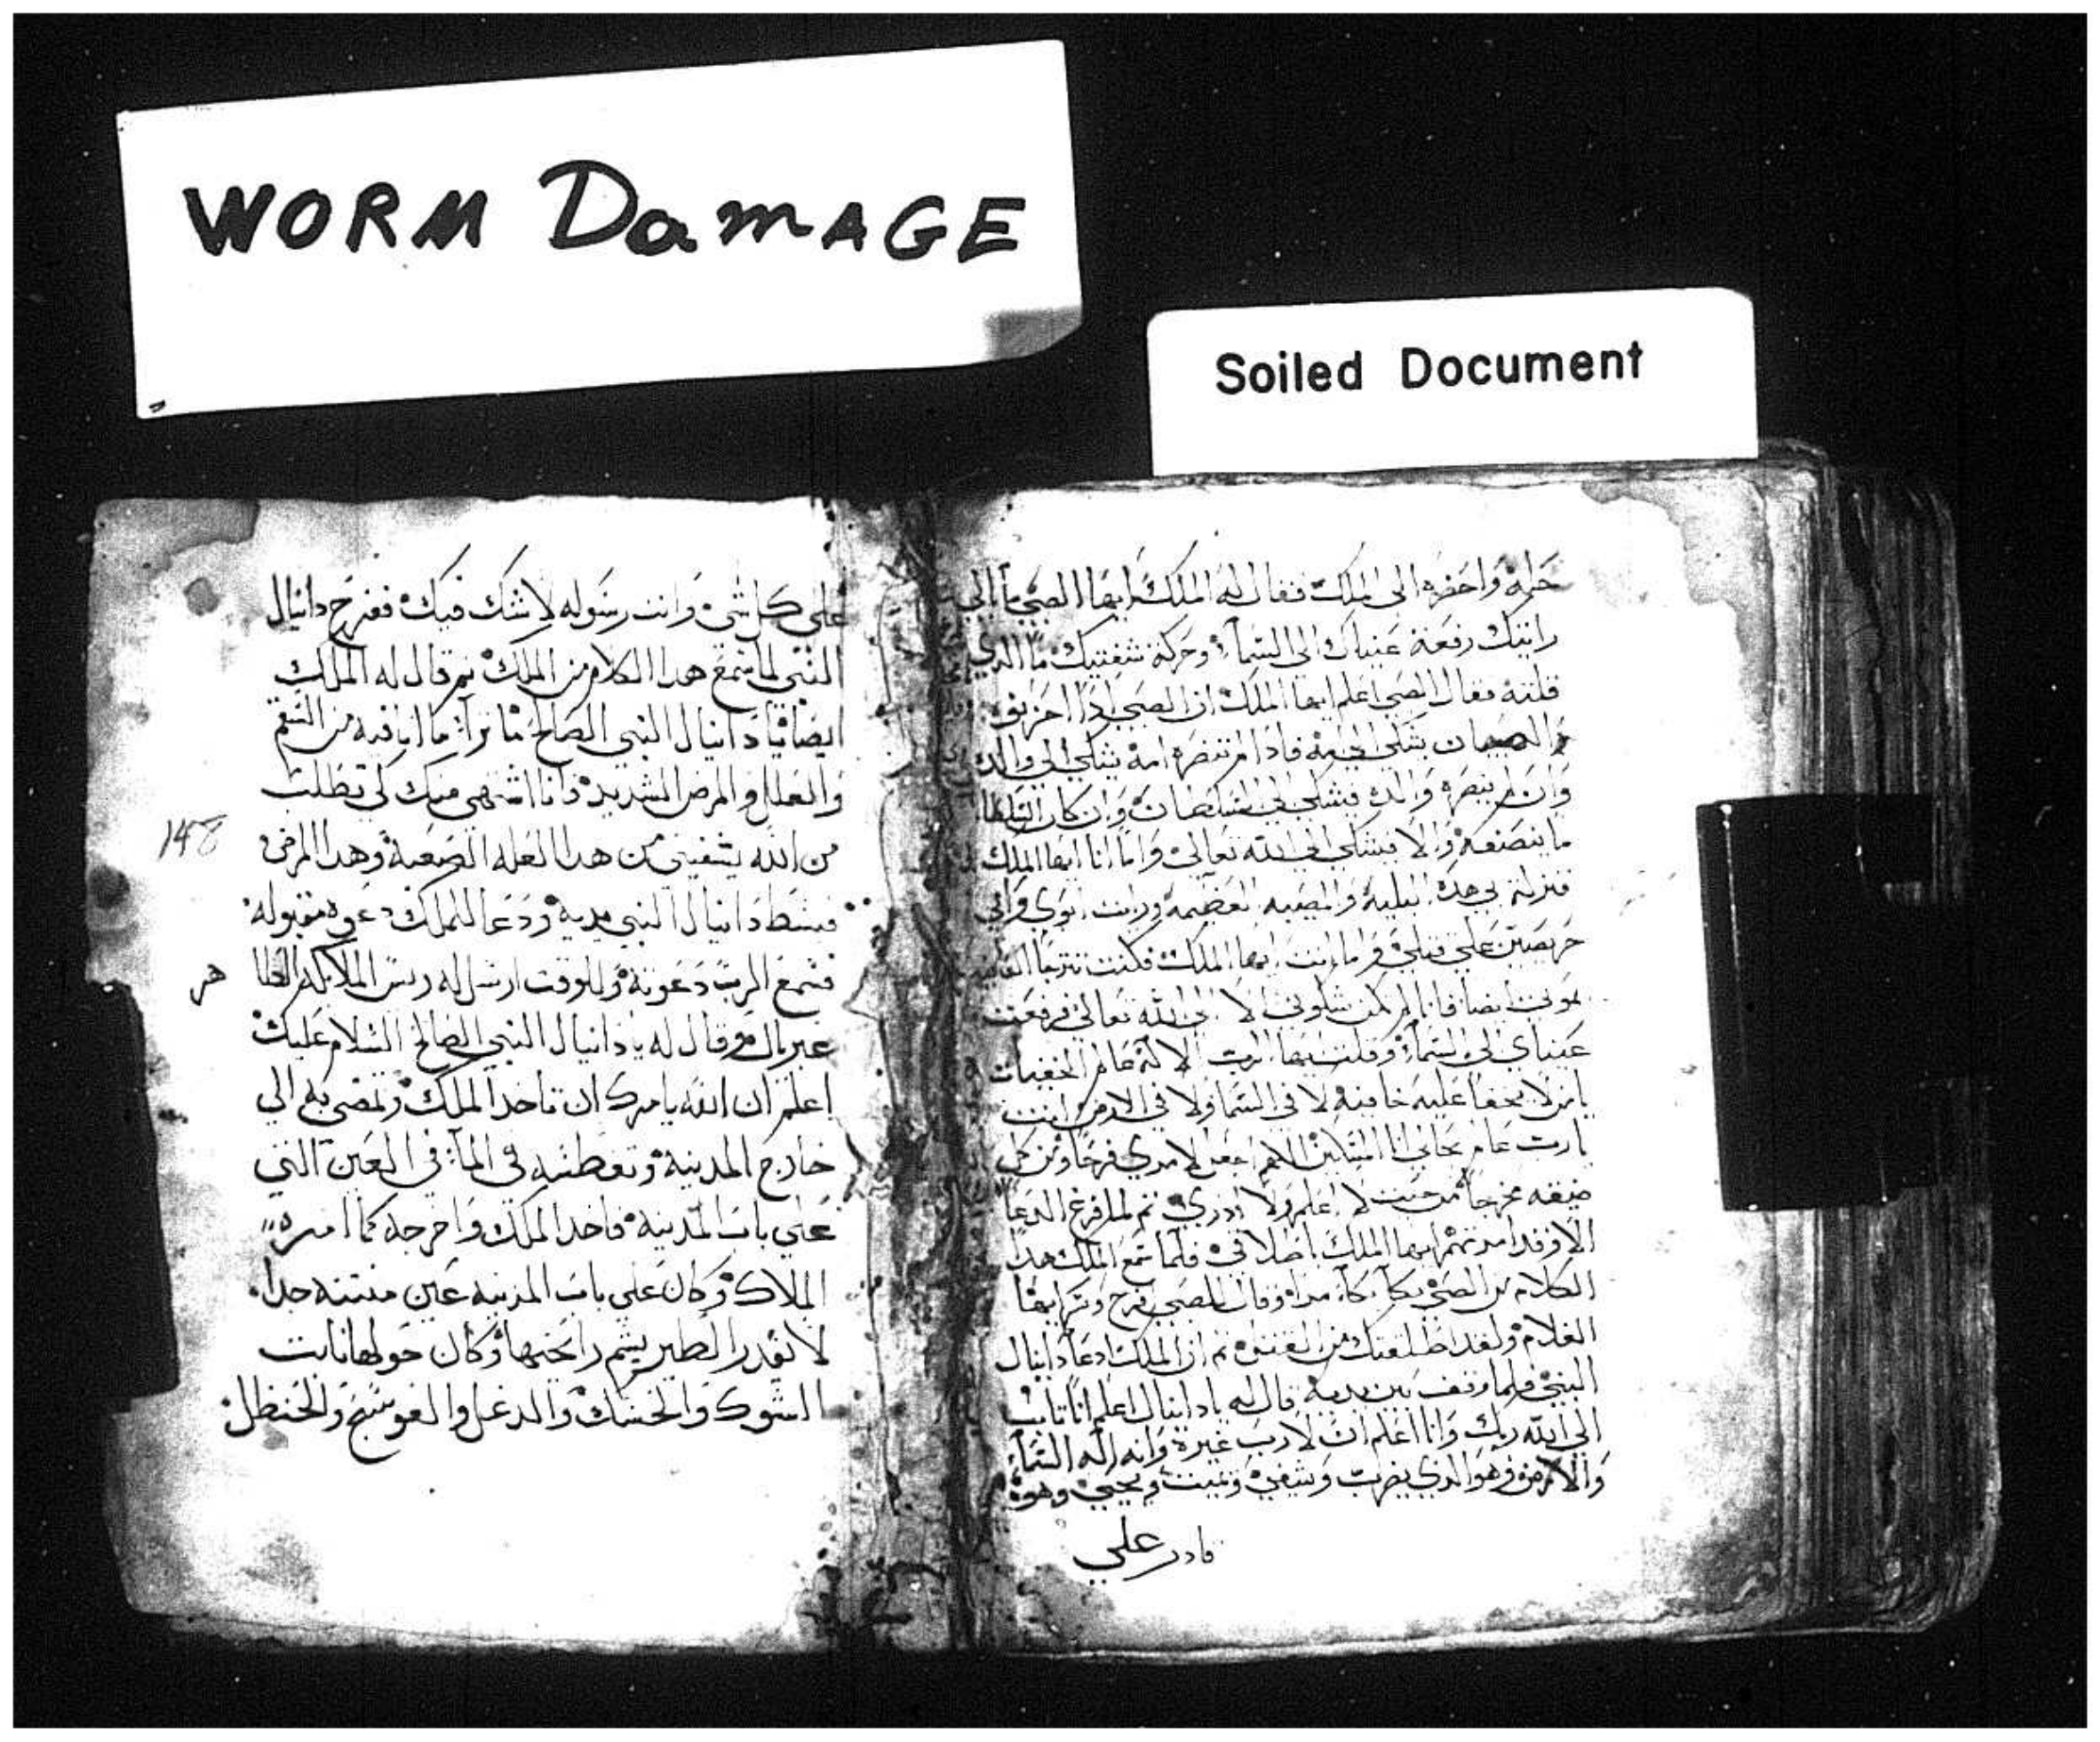 WORM DamAGE
Soiled Document
حله واحضره الى الملك فقال له الملك ايها الصبي ما الي
رايتك رفعة عيناك الى السماء وحركة شفتيك ما الدي
قلته فقال الصبي اعلم ايها الملك ان الصبي ادا احزنوه
الصبيان يشكي الى امه فادا لم تنصره امه يشكي الى والده
وان لم ينصره والده فيشكي الى السلطان وان كان السلطان
ما ينصفه والا فيشكي الى الله تعالى واما انا ايها الملك
فنزلة بي هده البليه والمصيبه العظيمه ورايت ابوي وامي
حريصين على قتلي واما انت ايها الملك فكنت تترجا العافيه
بموتي ايضا فانا لم يكن شكوتي الا الى الله تعالى فرفعت
عيناي الى السماء وقلت ايها الرب الاله عالم الخفيات
يا من لا يخفا عليه خافيه لا في السما ولا في الارض انت
يا رب عالم بحالي انا المسكين اللهم اجعل لامري فرجا ومن كل
ضيقه مخرجا من حيث لا اعلم ولا ادري ثم لم افرغ الدعا
الا وقد امرتهم ايها الملك باطلاقي فلما سمع الملك هدا
الكلام من الصبي بكا بكاء مرا وقال للصبي افرح وتر ايها
الغلام ولقد اطلقتك من القتل ثم ان الملك دعا دانيال
النبي فلما وقف بين يديه قال له يا دانيال اعلم انا تايب
الى الله ربك وانا اعلم ان لا رب غيره وانه اله السماء
والارض وهو الدي يضرب ويشفي ويميت ويحيي وهو
قادر علي
على كل شي وانت رسوله لا شك فيك ففرح دانيال
النبي لما سمع هدا الكلام من الملك ثم قال له الملك
ايضا يا دانيال النبي الصالح ما ترا ما انا فيه من السقم
والعلل والمرض الشديد وانا اشتهي منك لكي تطلب
من الله يشفيني من هدا العله الصعبة وهدا المرض
148
فبسط دانيال النبي يديه ودعا للملك دعوه مقبوله
فسمع الرب دعوته وللوقت ارسل له ريس الملايكه الطا
هر
غبريال وقال له يا دانيال النبي الصالح السلام عليك
اعلم ان الله يامرك ان تاخد الملك وتمضي به الي
خارج المدينه وتغطسه في الماء في العين التي
علي باب المدينه فاخد الملك واخرجه كما امره
الملاك وكان علي باب المدينه عين منتنه جدا
لا يقدر الطير يشم رايحتها وكان حولها نابت
الشوك والحسك والدغل والعوسج والحنظل